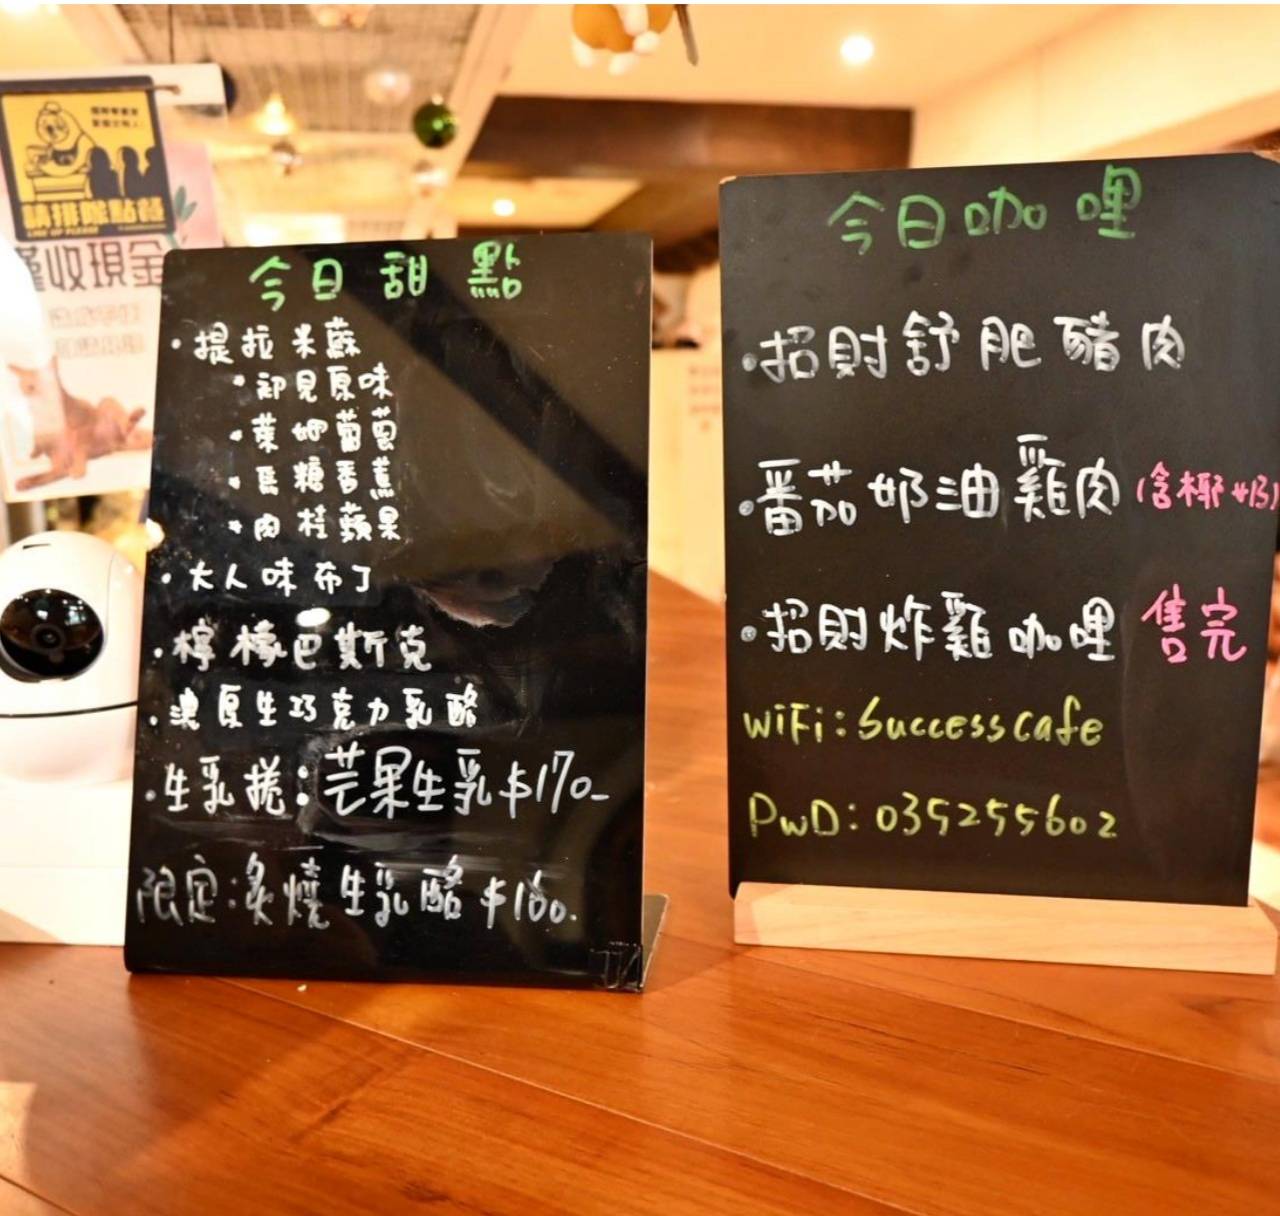 請排隊點餐
LINE UP PLEASE
僅收現金
今日甜點
・提拉米蘇
・初見原味
・萊姆葡萄
・焦糖香蕉
・肉桂蘋果
・大人味布丁
・檸檬巴斯克
・濃厚生巧克力乳酪
・生乳捲：芒果生乳$170-
限定：炙燒生乳酪$160.
今日咖哩
・招財舒肥豬肉
・番茄奶油雞肉(含椰奶)
・招財炸雞咖哩 售完
WiFi: Successcafe
PwD: 035255602